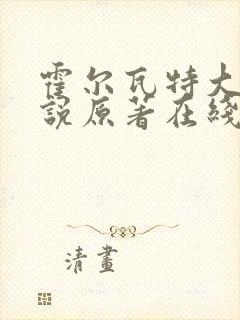 霍尔瓦特大
说原著在线
清畫